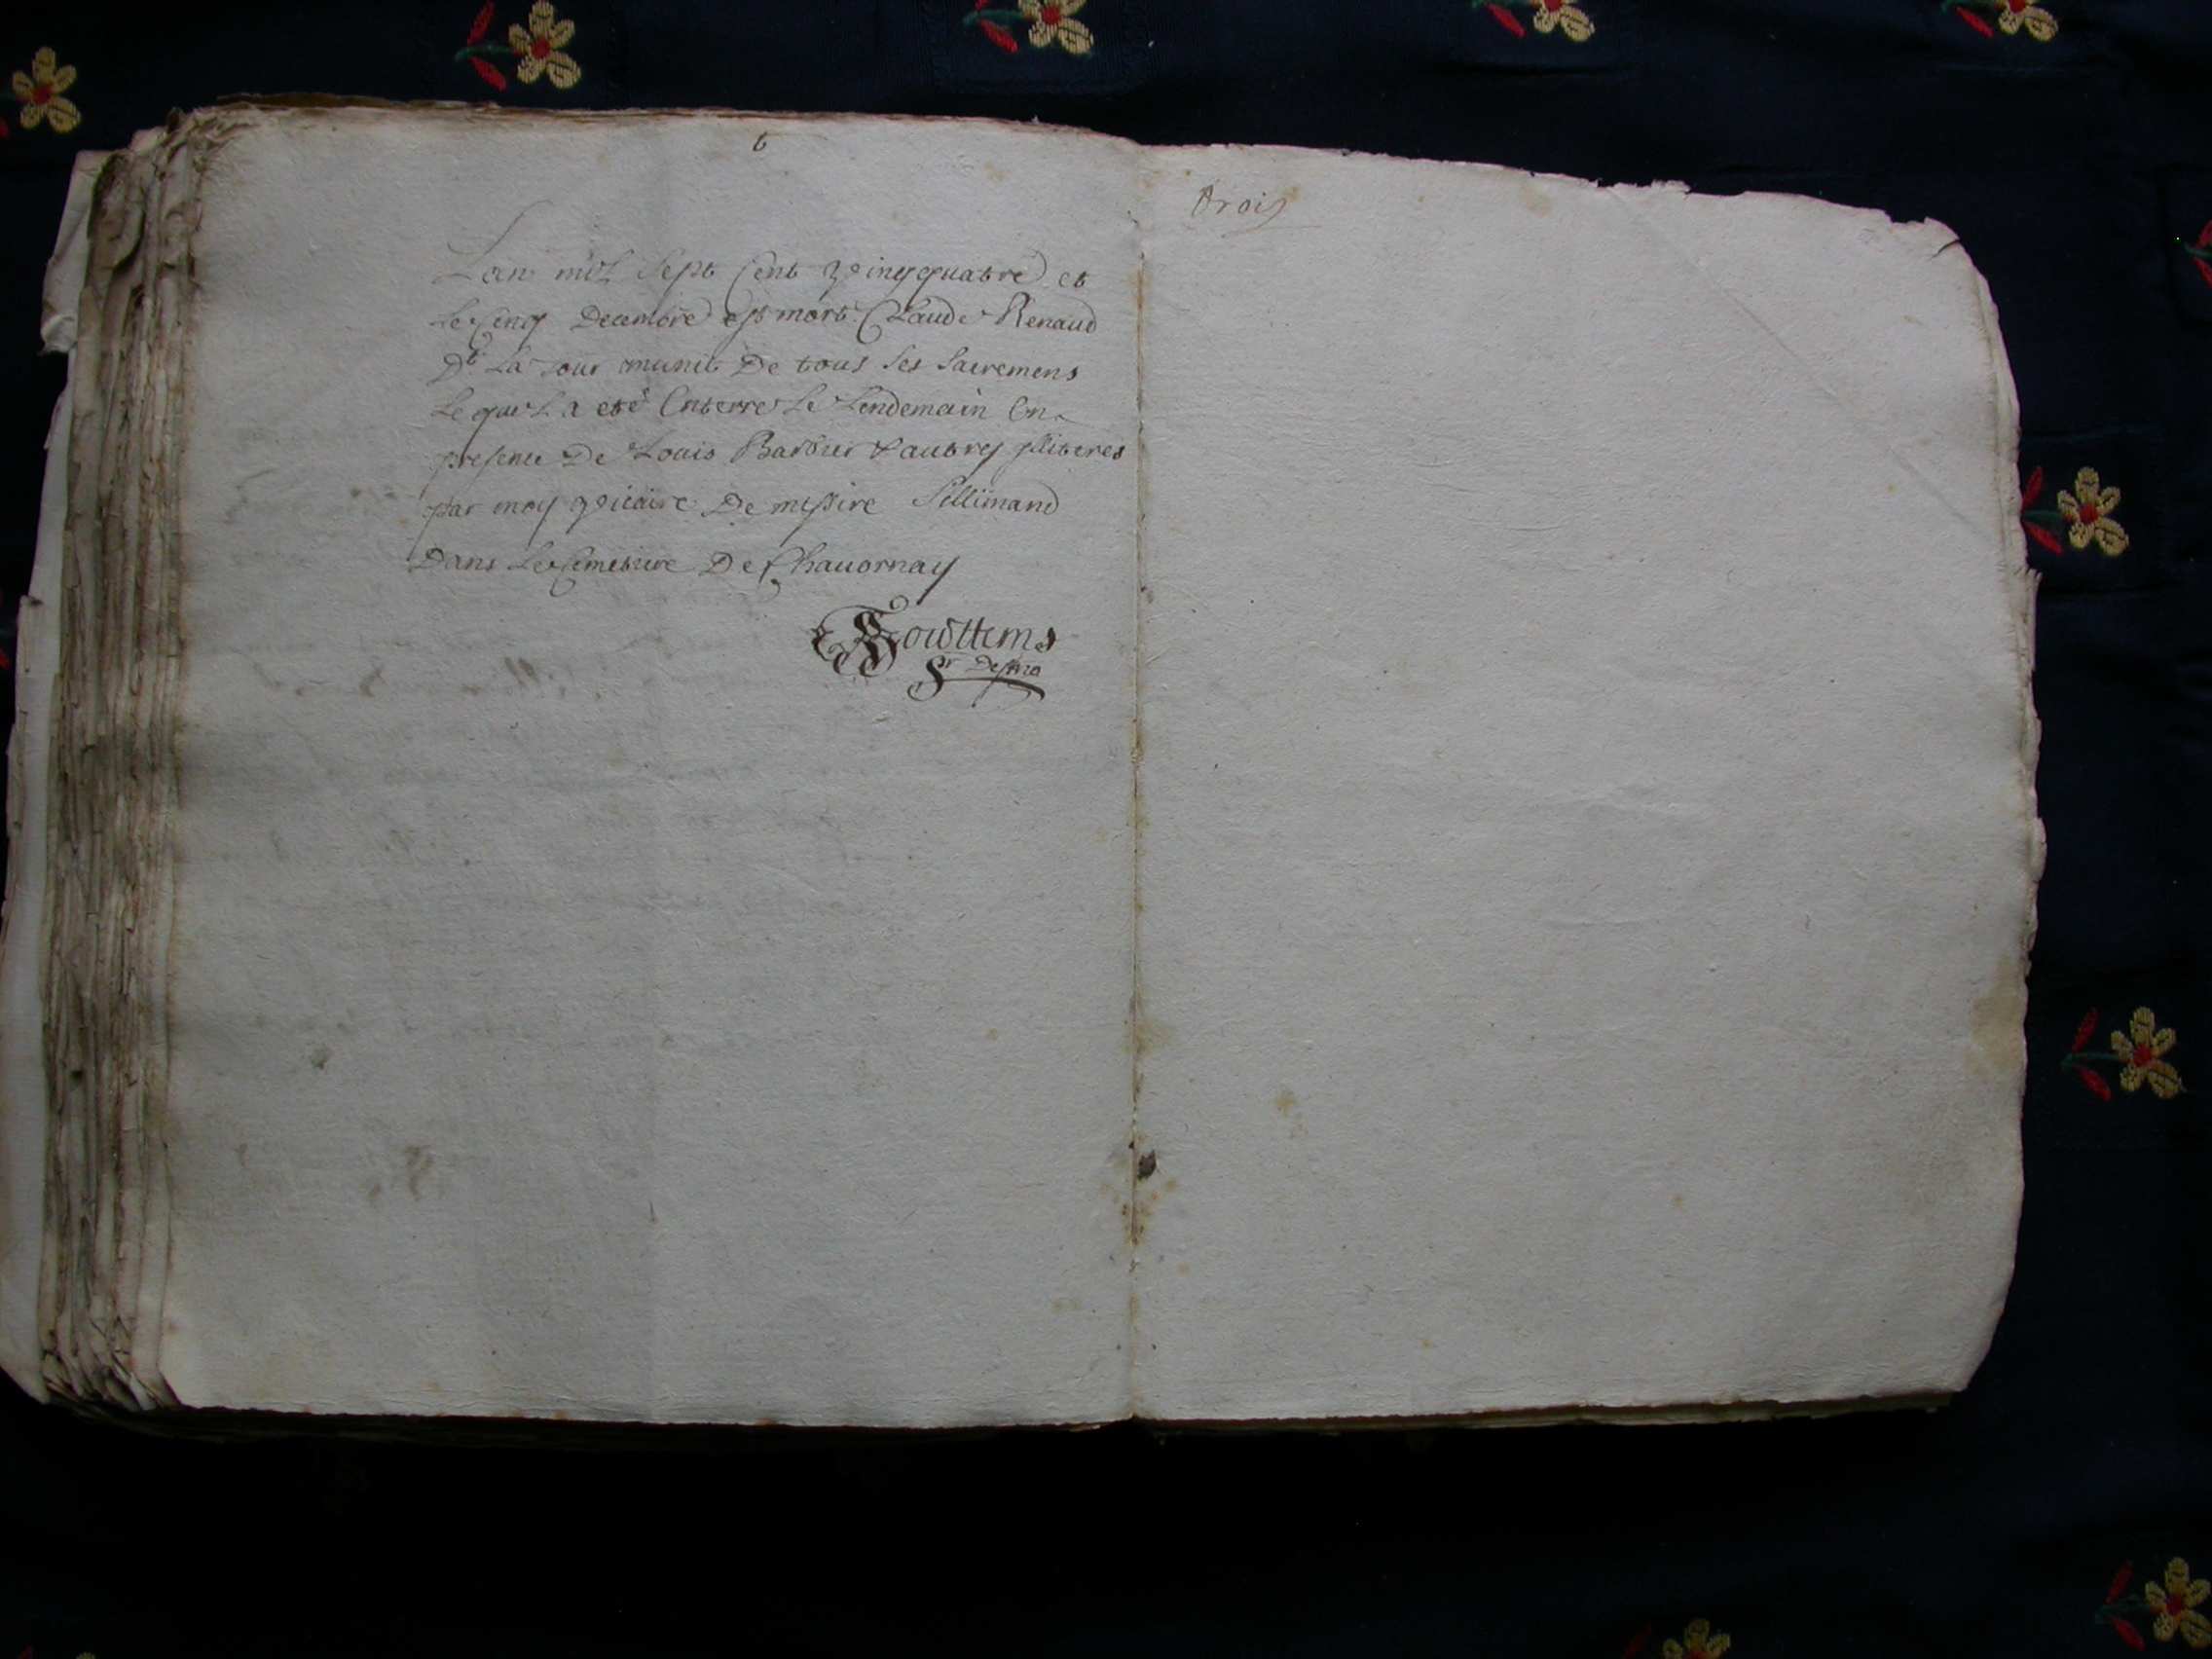 6
Lan mil Sept Cent Vingquatre et
le Cinq Decembre est mort Claude Renaud
Dt La tour munit De tous Ses Sacremens
Lequel a eté Enterre le Lendemain En
presence De Louis Barbier & aubry
par moy Vicaire De messire Sillimand
Dans le Cemetiere De Chauornay
trois